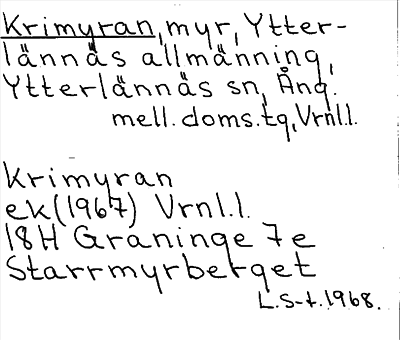 Krimyran, myr, Ytter-
lännäs allmänning,
Ytterlännäs sn, Ång.
mell. doms.tg, Vrnl.l.
Krimyran
ek(1967) Vrnl.l.
18H Graninge 7e
Starrmyrberget
L.S-t.1968.